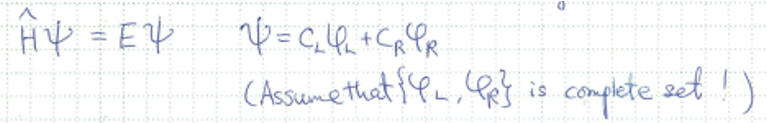 Ĥψ = Eψ ψ = C_Lφ_L + C_Rφ_R
(Assume that {φ_L, φ_R} is complete set ! )